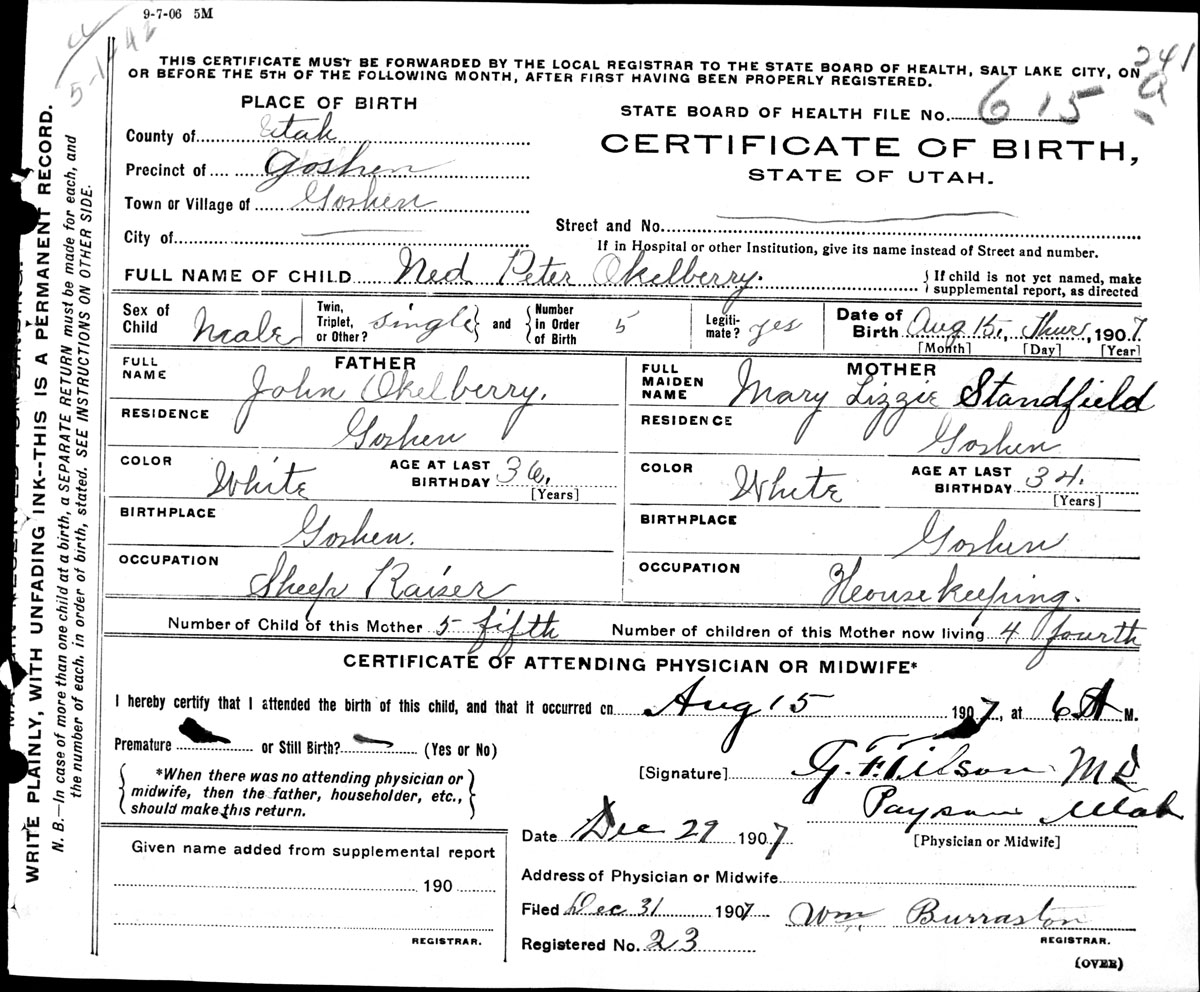 9-7-06 5M
241
THIS CERTIFICATE MUST BE FORWARDED BY THE LOCAL REGISTRAR TO THE STATE BOARD OF HEALTH, SALT LAKE CITY, ON
OR BEFORE THE 5TH OF THE FOLLOWING MONTH, AFTER FIRST HAVING BEEN PROPERLY REGISTERED.
PLACE OF BIRTH
STATE BOARD OF HEALTH FILE No. 615
County of Utah
CERTIFICATE OF BIRTH,
Precinct of Goshen
STATE OF UTAH.
Town or Village of Goshen
Street and No.
City of
If in Hospital or other Institution, give its name instead of Street and number.
FULL NAME OF CHILD Ned Peter Okelberry.
{ If child is not yet named, make
supplemental report, as directed
Sex of Child Male
Twin, Triplet, or Other? single } and { Number in Order of Birth 5
Legiti-mate? yes
Date of Birth Aug 15, Thur, 1907
[Month] [Day] [Year]
FATHER
FULL NAME John Okelberry.
RESIDENCE Goshen
COLOR White AGE AT LAST BIRTHDAY 36. [Years]
BIRTHPLACE Goshen.
OCCUPATION Sheep Raiser
MOTHER
FULL MAIDEN NAME Mary Lizzie Standfield
RESIDENCE Goshen
COLOR White AGE AT LAST BIRTHDAY 34. [Years]
BIRTHPLACE Goshen
OCCUPATION House keeping.
Number of Child of this Mother 5 fifth Number of children of this Mother now living 4 fourth
CERTIFICATE OF ATTENDING PHYSICIAN OR MIDWIFE*
I hereby certify that I attended the birth of this child, and that it occurred on Aug 15 1907, at 6 A M.
Premature or Still Birth? (Yes or No)
[Signature] G. F. Tilson M D
{ *When there was no attending physician or
midwife, then the father, householder, etc.,
should make this return. }
Payson Utah
Date Dec 29 1907
[Physician or Midwife]
Given name added from supplemental report
190
REGISTRAR.
Address of Physician or Midwife
Filed Dec 31 1907 Wm Burraston
REGISTRAR.
Registered No. 23
(OVER)
WRITE PLAINLY, WITH UNFADING INK--THIS IS A PERMANENT RECORD.
N. B.—In case of more than one child at a birth, a SEPARATE RETURN must be made for each, and
the number of each, in order of birth, stated. SEE INSTRUCTIONS ON OTHER SIDE.